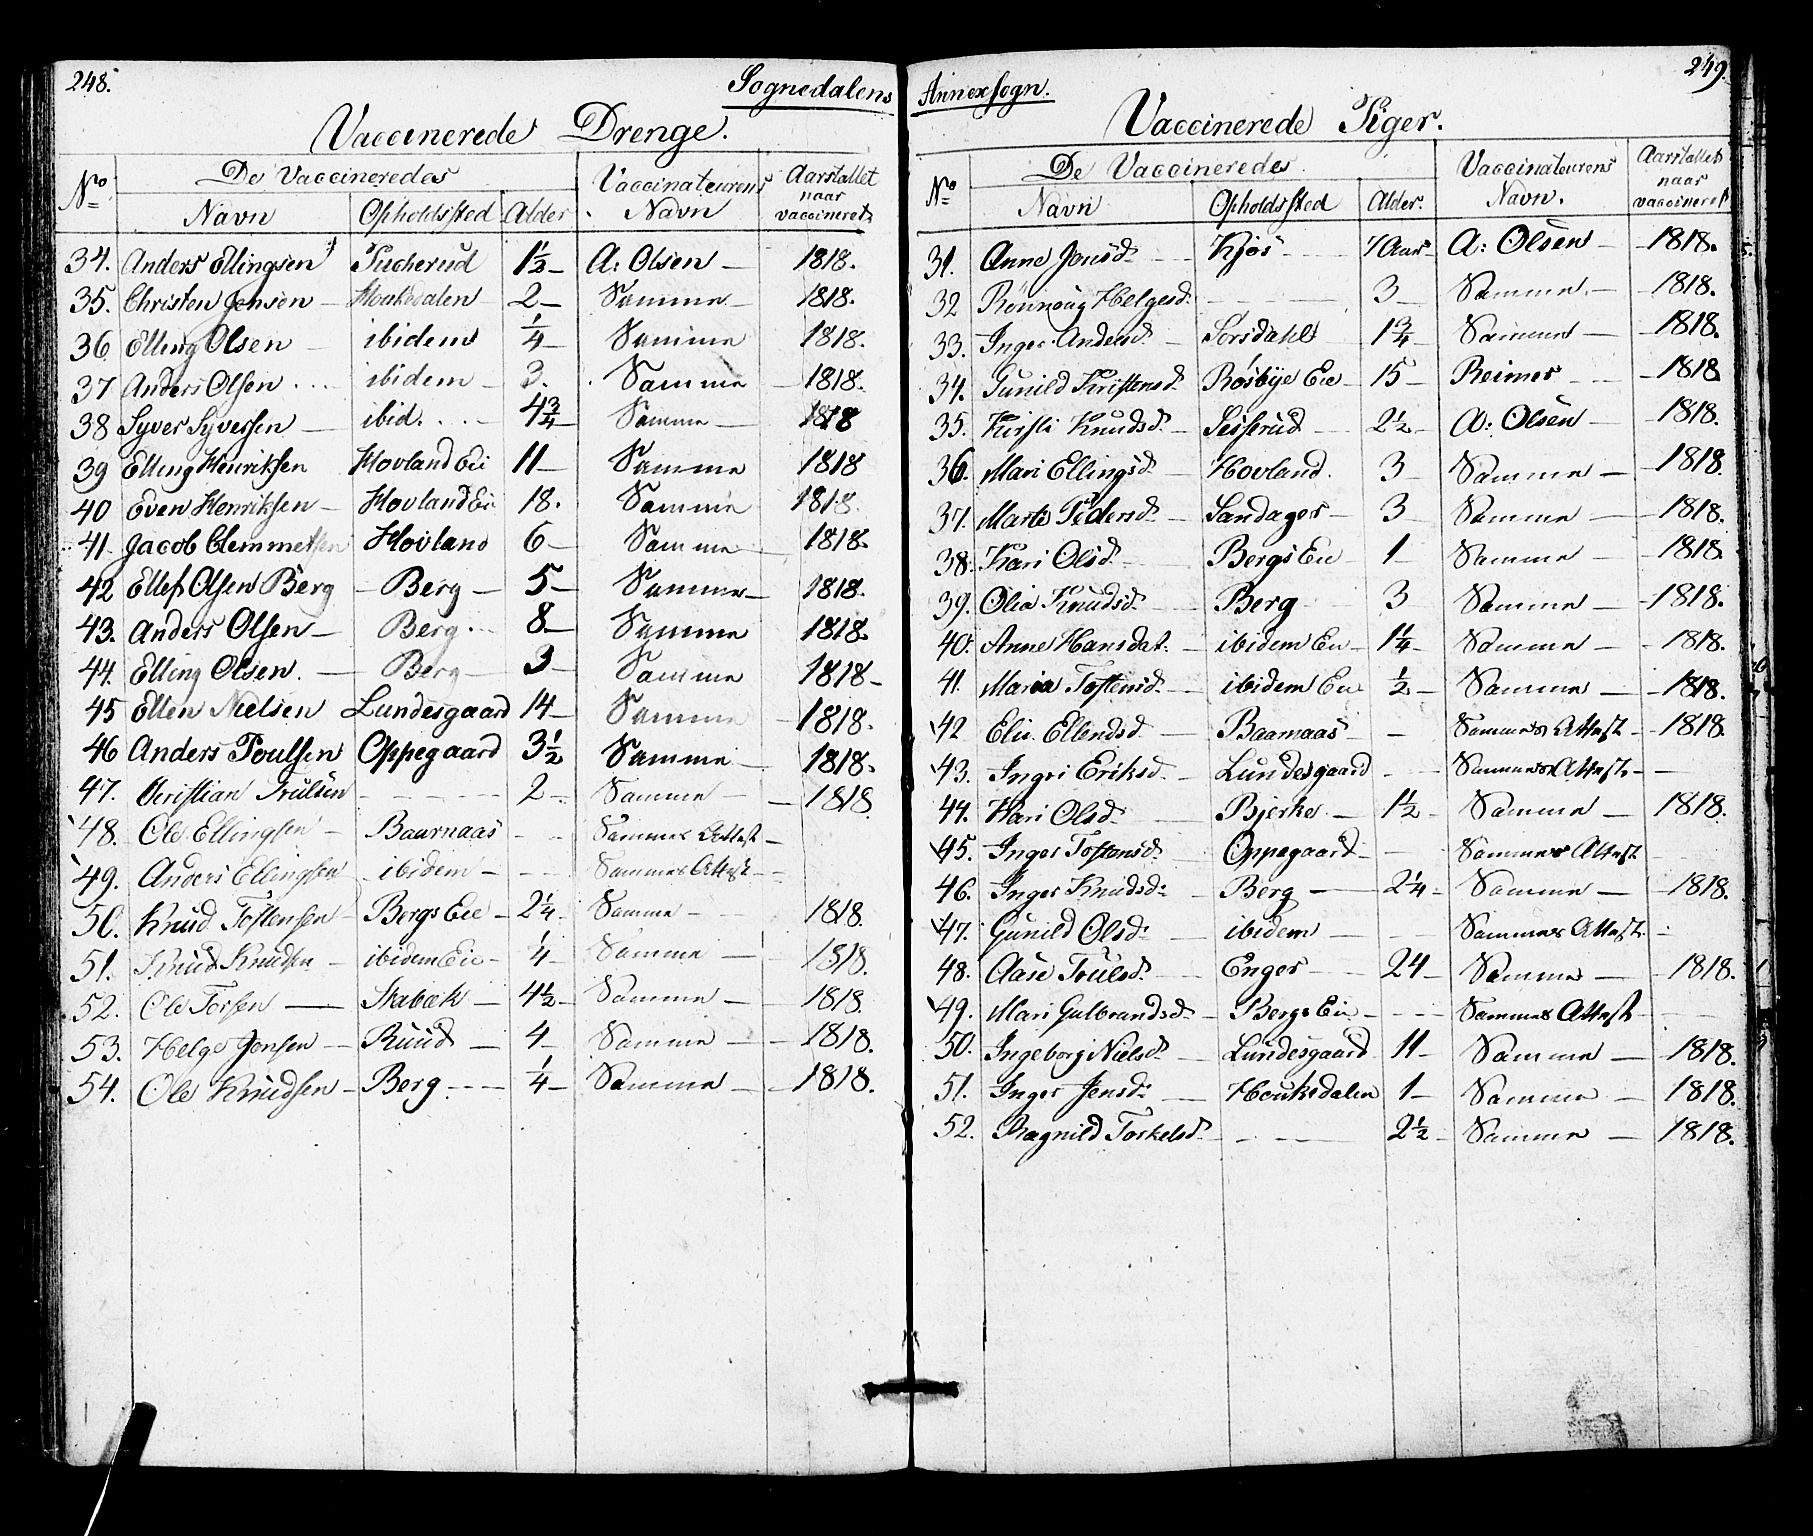 248.
Sognedalens
Vaccinerede Drenge.
No
De Vaccineredes
Vaccinateurens
Navn
Aarstallet
naar
vaccineret
Navn Opholdssted Alder
34. Anders Ellingsen Tucherud 1½ A: Olsen 1818.
35. Christen Jensen Houkedalen 2 Samme 1818.
36 Elling Olsen ibidem ¼ Samme 1818.
37 Anders Olsen ibidem 3. Samme 1818.
38 Syver Syversen ibid. 4¾ Samme 1818
39 Elling Henriksen Hovland Eie 11 Samme 1818
40 Even Henriksen Hovland Eie 18. Samme 1818.
41. Jacob Clemmetsen Hovland 6 Samme 1818.
42 Ellef Olsen Berg Berg 5 Samme 1818.
43. Anders Olsen Berg 8 Samme 1818.
44. Elling Olsen. Berg 3 Samme 1818
45 Ellen Nielsen Lundesgaard 14 Samme 1818.
46 Anders Poulsen Oppegaard 3½ Samme 1818.
47. Christian Trulsen 2 Samme 1818
48. Ole Ellingsen Baarnaas Sammes Attest
49. Anders Ellingsen ibidem Sammes Attest
50. Knud Tostensen Bergs Eie 2¼ Samme 1818.
51. Knud Knudsen ibidem Eie ¼ Samme 1818.
52. Ole Torsen Stabæk 4½ Samme 1818.
53. Helge Jensen Ruud 4 Samme 1818.
54. Ole Knudsen Berg ¼ Samme 1818.
249.
Annexsogn.
Vaccinerede Piger.
No
De Vaccineredes
Vaccinateurens
Navn.
Aarstallet
naar
vaccineret
Navn Opholdssted Alder.
31. Anne Jensd. Kjos Aar A: Olsen 1818.
32 Rønnoug Helgesd. 3 Samme 1818.
33. Inger Andersd. Sorsdahl 1¾ Samme 1818.
34. Gunild Kristensd. Røsbye Eie 15 Reimer 1818
35. Kirsti Knudsd. 2½ A: Olsen 1818.
36. Mari Ellingsd. Hovland. 3 Samme 1818.
37. Marte Pedersd. Sandager 3 Samme 1818.
38. Kari Olsd. Bergs Eie 1 Samme 1818.
39. Olia Knudsd. Berg 3 Samme 1818.
40. Anne Hansdat. ibidem Eie 1¼ Samme 1818.
41. Maria Tostensd. ibidem Eie ½ Samme 1818.
42 Elie Ellendsd. Baarnaas Sammes Attest 1818.
43. Ingri Eriksd. Lundesgaard Sammes Attest
44. Kari Olsd. Bjerke 1½ Samme 1818.
45. Inger Tostensd. Oppegaard Sammes Attest
46. Inger Knudsd. Berg 2¼ Samme 1818.
47. Gunild Olsd. ibidem Sammes Attest
48. Aase Trulsd. Enger 24 Samme 1818.
49. Mari Gulbrandsd. Bergs Eie Sammes Attest
50. Ingeborg Nielsd. Lundesgaard 11 Samme 1818.
51. Inger Jensd. Houkedalen 1 Samme 1818.
52. Ragnild Torkelsd. 2½ Samme 1818.